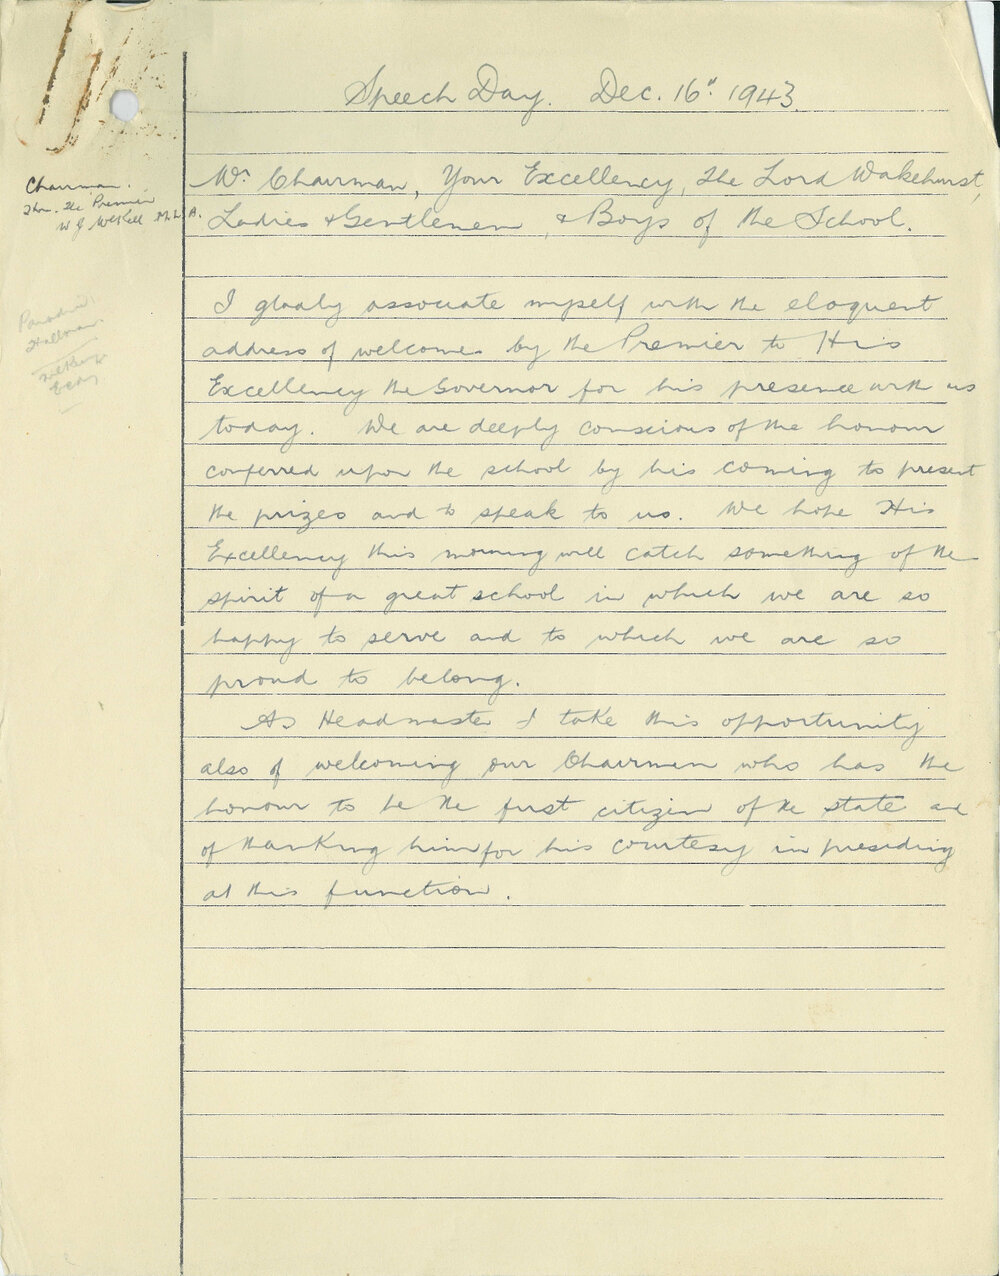 Speech Day. Dec. 16" 1943.
Chairman.
Hon. the Premier
W J McKell M.L.A.
Mr Chairman, Your Excellency, the Lord Wakehurst,
Ladies & Gentlemen, & Boys of the School.
I gladly associate myself with the eloquent
address of welcome by the Premier to His
Excellency the Governor for his presence with us
today. We are deeply conscious of the honour
conferred upon the school by his coming to present
the prizes and to speak to us. We hope His
Excellency this morning will catch something of the
spirit of a great school in which we are so
happy to serve and to which we are so
proud to belong.
As Headmaster I take this opportunity
also of welcoming our Chairman who has the
honour to be the first citizen of the state and
of thanking him for his courtesy in presiding
at this function.